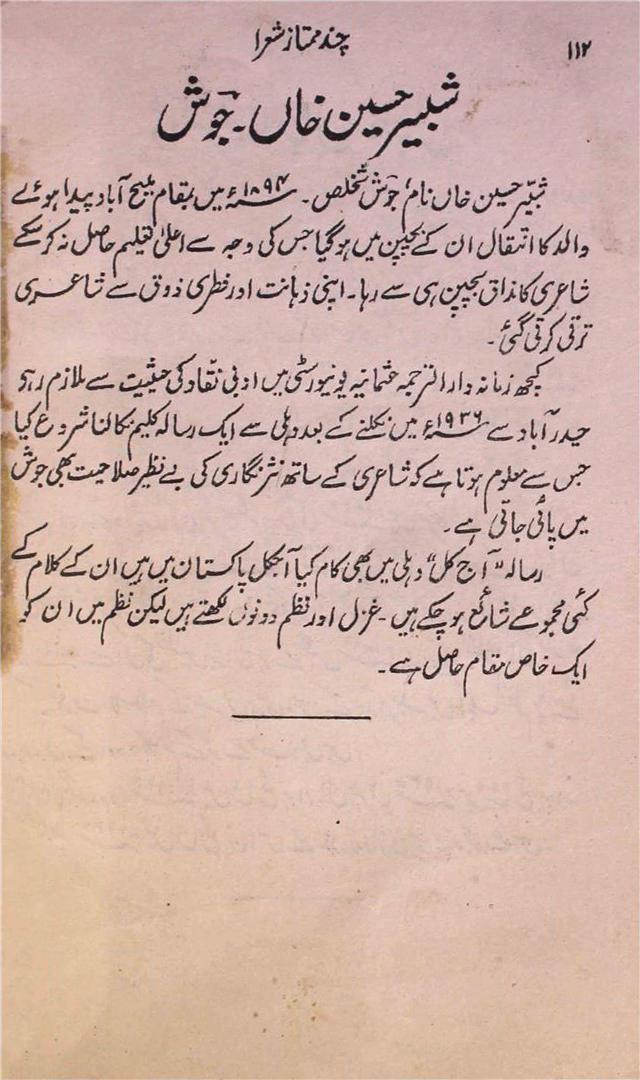 ۱۱۲
چند ممتاز شعرا
شبیر حسین خاں۔ جوش
شبیر حسین خاں نام، جوش تخلص۔ ۱۸۹۴ء میں بمقام ملیح آباد پیدا ہوئے
والد کا انتقال ان کے بچپن میں ہو گیا جس کی وجہ سے اعلیٰ تعلیم حاصل نہ کر سکے
شاعری کا مذاق بچپن ہی سے رہا۔ اپنی ذہانت اور فطری ذوق سے شاعری
ترقی کرتی گئی۔
کچھ زمانہ دارالترجمہ عثمانیہ یونیورسٹی میں ادبی نقاد کی حیثیت سے ملازم رہو
حیدرآباد سے ۱۹۳۶ء میں نکلنے کے بعد دہلی سے ایک رسالہ کلیم نکالنا شروع کیا
جس سے معلوم ہوتا ہے کہ شاعری کے ساتھ نثر نگاری کی بے نظیر صلاحیت بھی جوش
میں پائی جاتی ہے۔
رسالہ "آج کل" دہلی میں بھی کام کیا آجکل پاکستان میں ہیں ان کے کلام کے
کئی مجموعے شائع ہو چکے ہیں۔ غزل اور نظم دونوں لکھتے ہیں لیکن نظم میں ان کو
ایک خاص مقام حاصل ہے۔